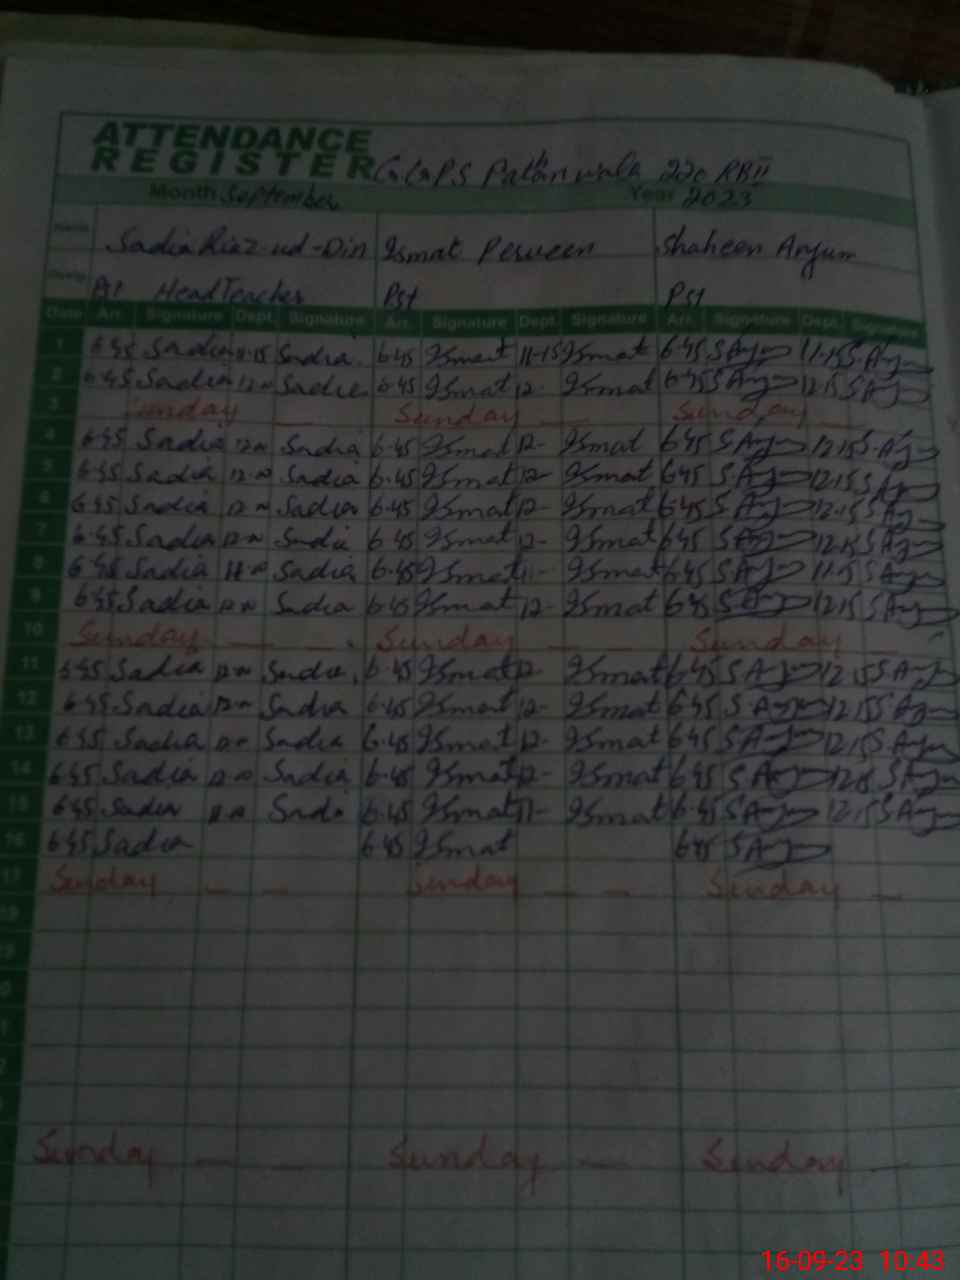 ATTENDANCE
REGISTER G.G.P.S Pathanwala 220 RB II
Month September Year 2023
Name Sadia Riaz-ud-Din Ismat Perveen Shaheen Anjum
Head Teacher Pst Pst
Date Arr. Signature Dept. Signature Arr. Signature Dept. Signature Arr. Signature Dept. Signature
1 6.45 Sadia 11-15 Sadia 6.45 Ismat 11-15 Ismat 6.45 S Anjum 11.15 S.Anjum
2 6.45 Sadia 12-00 Sadia 6.45 Ismat 12- Ismat 6.45 S Anjum 12.15 S Anjum
3 Sunday Sunday Sunday
4 6.45 Sadia 12-00 Sadia 6.45 Ismat 12- Ismat 6.45 S Anjum 12.15 S.Anjum
5 6.45 Sadia 12-00 Sadia 6.45 Ismat 12- Ismat 6.45 S Anjum 12.15 S Anjum
6 6.45 Sadia 12-00 Sadia 6.45 Ismat 12- Ismat 6.45 S Anjum 12.15 S Anjum
7 6.45 Sadia 12-00 Sadia 6.45 Ismat 12- Ismat 6.45 S Anjum 12.15 S Anjum
8 6.45 Sadia 11-00 Sadia 6.45 Ismat 11- Ismat 6.45 S Anjum 11.15 S Anjum
9 6.45 Sadia 12-00 Sadia 6.45 Ismat 12- Ismat 6.45 S Anjum 12.15 S Anjum
10 Sunday Sunday Sunday
11 6.45 Sadia 12-00 Sadia 6.45 Ismat 12- Ismat 6.45 S Anjum 12.15 S Anjum
12 6.45 Sadia 12-00 Sadia 6.45 Ismat 12- Ismat 6.45 S Anjum 12.15 S Anjum
13 6.45 Sadia 12-00 Sadia 6.45 Ismat 12- Ismat 6.45 S Anjum 12.15 S Anjum
14 6.45 Sadia 12-00 Sadia 6.45 Ismat 12- Ismat 6.45 S Anjum 12.15 S Anjum
15 6.45 Sadia 11-00 Sadia 6.45 Ismat 11- Ismat 6.45 S Anjum 12.15 S Anjum
16 6.45 Sadia 6.45 Ismat 6.45 S Anjum
17 Sunday Sunday Sunday
Sunday Sunday Sunday
16-09-23 10:43